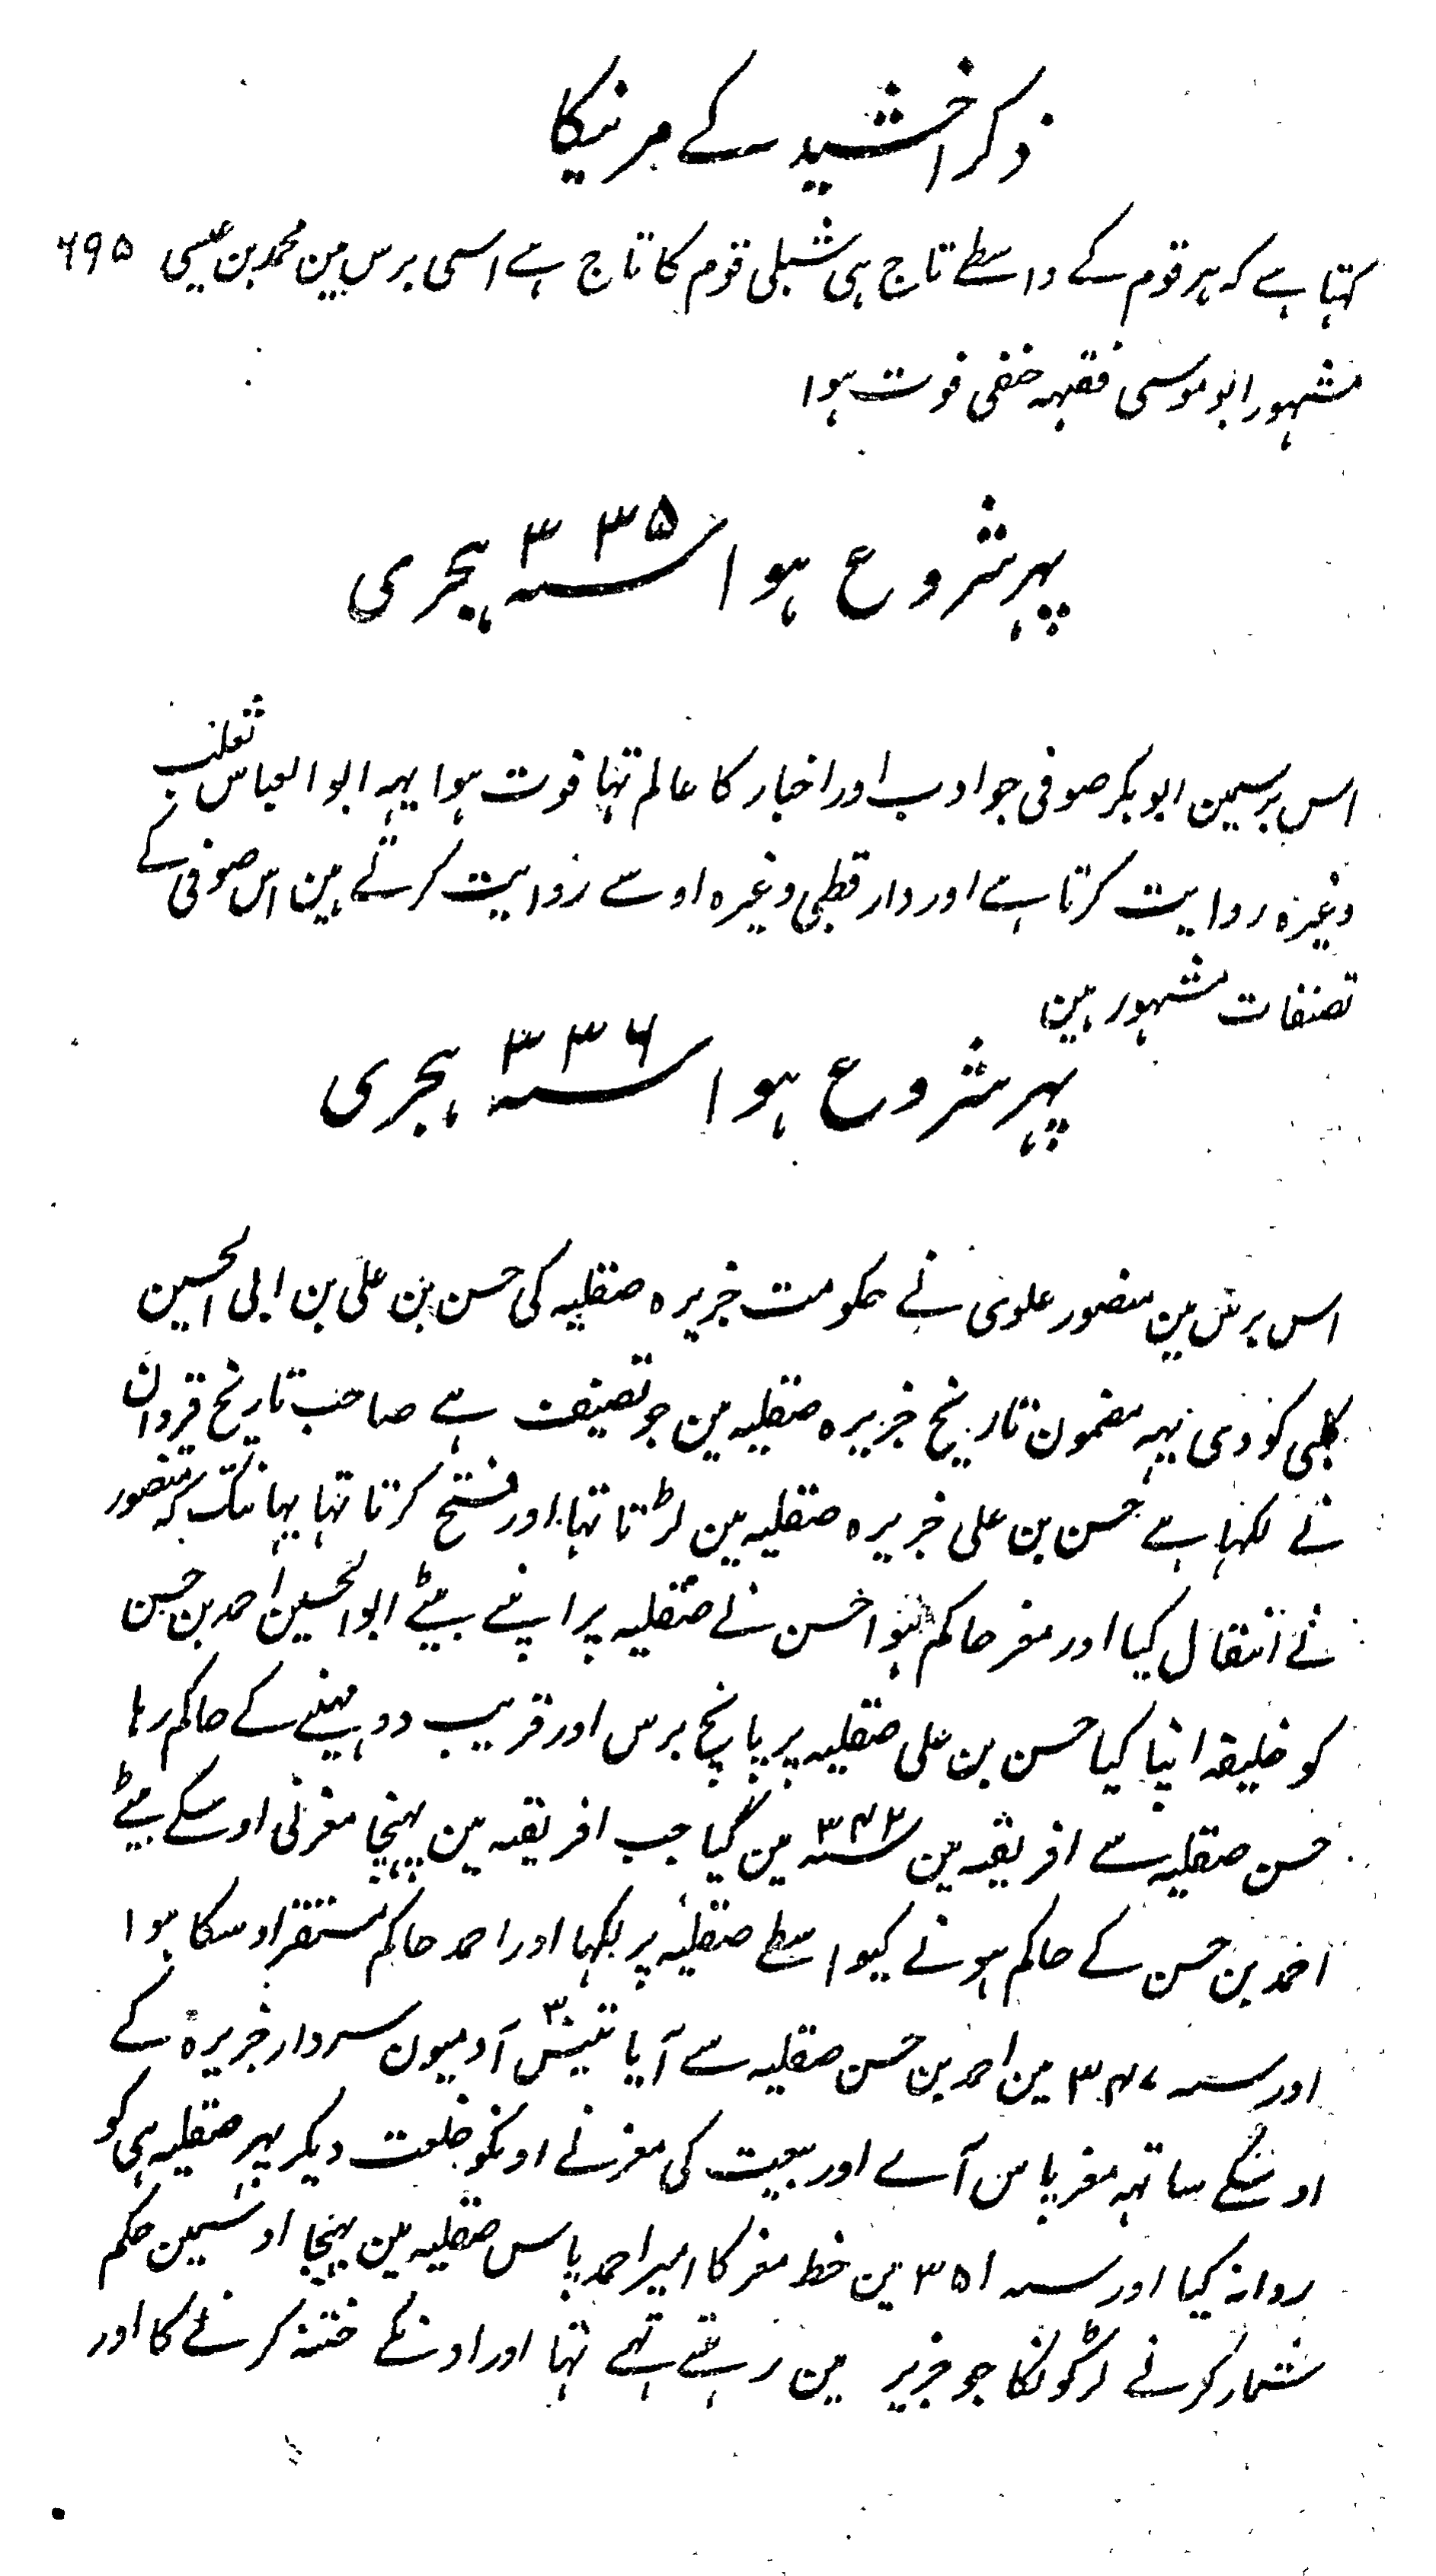 ذکر اخشید کے مرنیکا
۶۹۵
کہتا ہے کہ ہر قوم کے واسطے تاج ہی شبلی قوم کا تاج ہے اسی برس مین محمد بن عیسی
مشہور ابو موسی فقیہہ حنفی فوت ہوا
پہر شروع ہوا سنہ ۳۳۵ ہجری
اس برسمین ابو بکر صوفی جو ادب اور اخبار کا عالم تہا فوت ہوا یہہ ابو العباس ثعلب
وغیرہ روایت کرتا ہے اور دار قطنی وغیرہ اوسے روایت کرتے ہین اس صوفی کے
تصنفات مشہور ہین
پہر شروع ہوا سنہ ۳۳۶ ہجری
اس برس مین منصور علوی نے حکومت جزیرہ صقلیہ کی حسن بن علی بن ابی الحسین
کلبی کو دی یہہ مضمون تاریخ جزیرہ صقلیہ مین جو تصنیف ہے صاحب تاریخ قیروان
نے لکہا ہے حسن بن علی جزیرہ صقلیہ مین لڑتا تہا اور فتح کرتا تہا یہانتک کہ منصور
نے انتقال کیا اور معز حاکم ہوا حسن نے صقلیہ پر اپنے بیٹے ابو الحسین احمد بن حسن
کو خلیفہ اپنا کیا حسن بن علی صقلیہ پر پانچ برس اور قریب دو مہینے کے حاکم رہا
حسن صقلیہ سے افریقہ مین سنہ ۳۴۲ مین گیا جب افریقہ مین پہنچا معزنی اوسکے بیٹے
احمد بن حسن کے حاکم ہونے کیواسطے صقلیہ پر لکہا اور احمد حاکم مستقر اوسکا ہوا
اور سنہ ۳۴۷ مین احمد بن حسن صقلیہ سے آیا تیس ۳۰ آدمیون سردار جزیرہ کے
اوسکے ساتہہ معز پاس آے اور بیعت کی معزنے اونکو خلعت دیکر پہر صقلیہ ہی کو
روانہ کیا اور سنہ ۳۵۱ مین خط معز کا امیر احمد پاس صقلیہ مین پہنچا اوسمین حکم
شمار کرنے لڑکونکا جو جزیر مین رہتے تہے تہا اور اونکے ختنہ کرنے کا اور